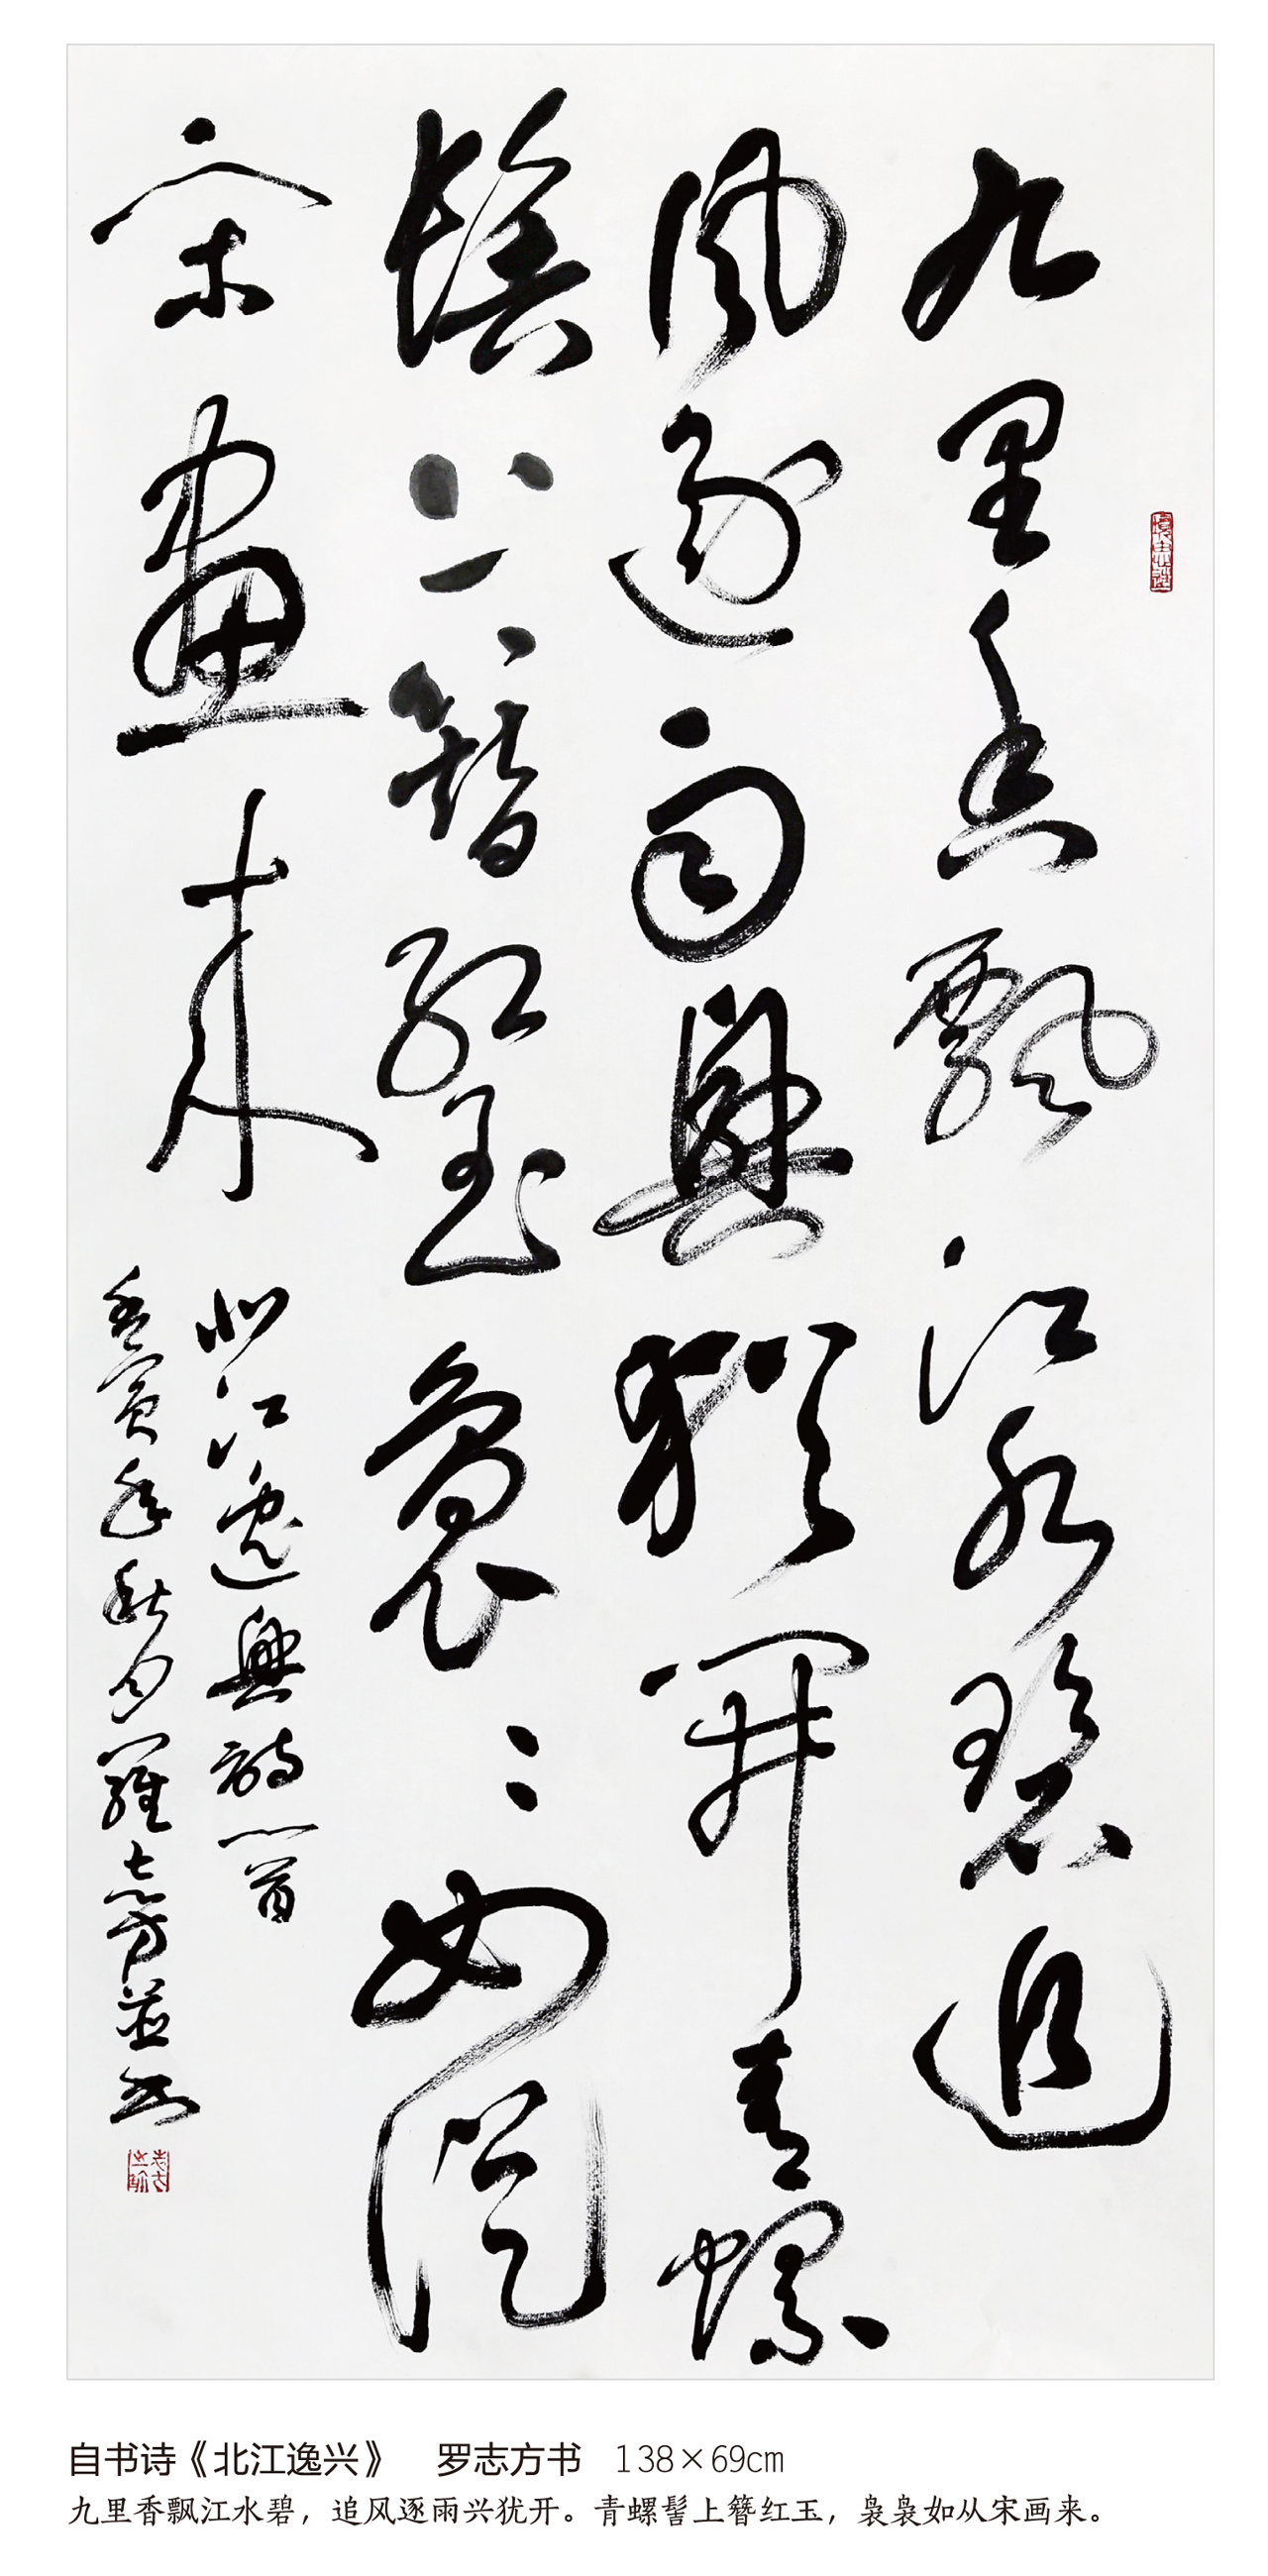 九里香飄江水碧追
風逐雨興猶開青螺
髻上簪紅玉裊裊如從
宋畫來
北江逸興詩一首
壬寅年秋月羅志方並書
自书诗《北江逸兴》 罗志方书 138×69cm
九里香飘江水碧，追风逐雨兴犹开。青螺髻上簪红玉，袅袅如从宋画来。